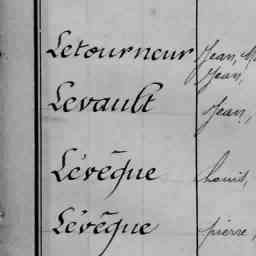 Letourneur Jean, M
Jean,
Levault Jean,
Lévêque Louis,
Lévêque pierre,